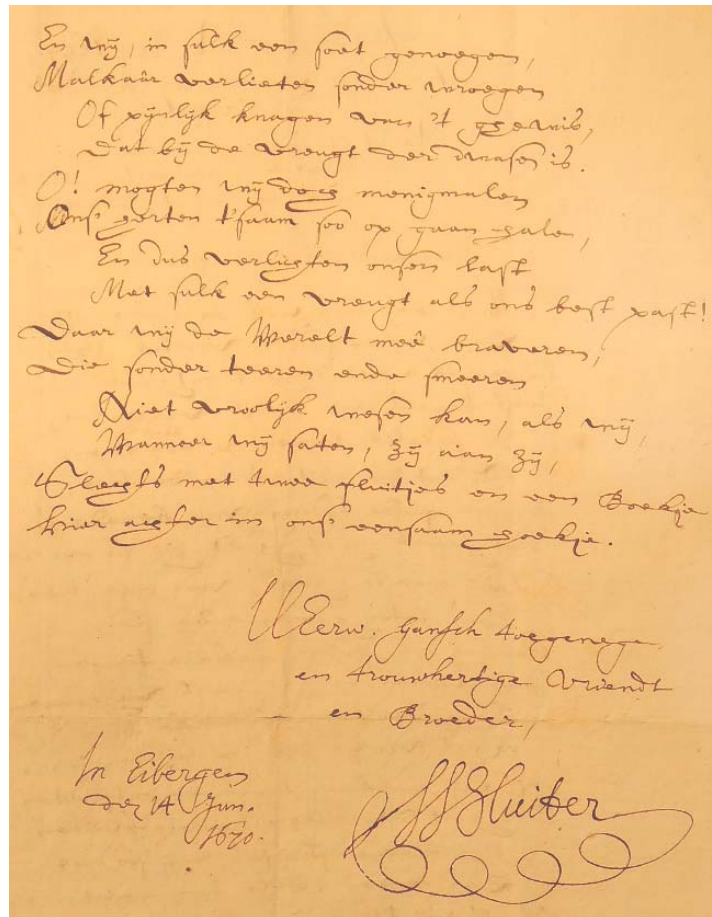 En wij, in sulk een soet genoegen,
Malkaâr verlieten sonder wroegen
Of pijnlijk knagen van 't gewis,
Dat bij de vreugt der dwasen is.
O! mogten wij doch menigmalen
Ons herten t'saam soo op gaan halen,
En dus verlichten onsen last
Met sulk een vreugt als ons best past!
Daar wij de Werelt meê braveren,
Die sonder teeren ende smeeren
Niet vroolijk wesen kan, als wij,
Wanneer wij saten, zij aan zij,
Slechts met twee fluitjes en een Boekje
hier achter in ons eensaam hoekje.
UEerw. gansch toegenege
en trouwhertige Vriendt
en Broeder,
In Eibergen
den 14 Jun.
1670.
Sluiter